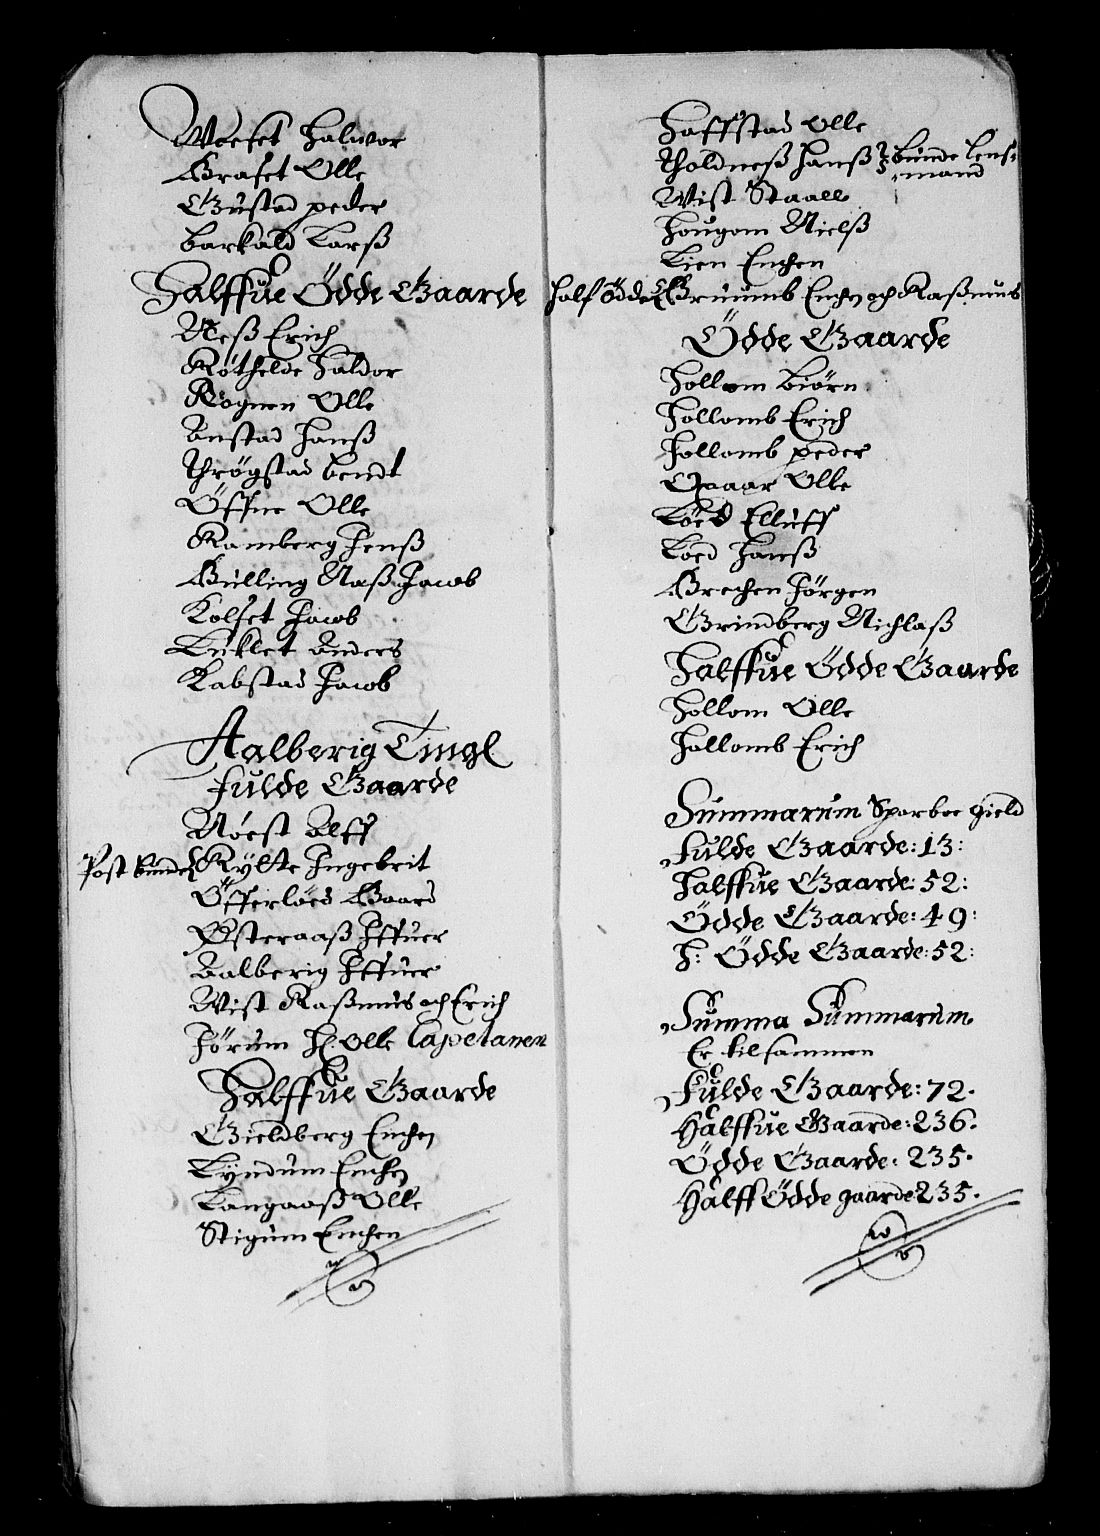 Woeset Halwor
Graset Olle
Gustad peder
barkald Larß
Halffue Ödde Gaarde
Neß Erich
Röthelde Haldor
Rögnen Olle
Anstad Hanß
Thrögstad bendt
Öffne Olle
Ramberg Jenß
Gulling Naß Jacob
Kolset Jacob
Tuklet Anders
Kabstad Jacob
Aalberig Tingl
Fulde Gaarde
Nöest Alff
Post bunde Rylte Ingebrit
Öfferlöed Gaard
Østeraaß Iffuer
Aalberig Iffuer
Wist Raßmus och Erich
Jörum H: Olle Capetanen
Halffue Gaarde
Gieldberg Enchen
Lyndum Enchen
Langaaß Olle
Stigum Enchen
Haffstad Olle
Tholdneß Hanß bunde Lens-
mand
Wist Staall
Hougom Nielß
Lien Enchen
half ödde Gruumb Enchen och Raßmus
Ödde Gaarde
Hollom biörn
Hollomb Erich
Hollomb peder
Qvaar Olle
Löed Elluff
Löed Hanß
Grechen Jörgen
Grindberg Nichlaß
Halffue Ödde Gaarde
Hollom Olle
Hollomb Erich
Summarum Sparboe gield
Fulde Gaarde: 13:
Halffue Gaarde: 52:
Ödde Gaarde: 49:
H: Ödde Gaarde: 52:
Summa Summarum
Er tilsammen
Fulde Gaarde: 72.
Halffue Gaarde: 236.
Ödde Gaarde: 235.
Halff Ödde gaarde 235.